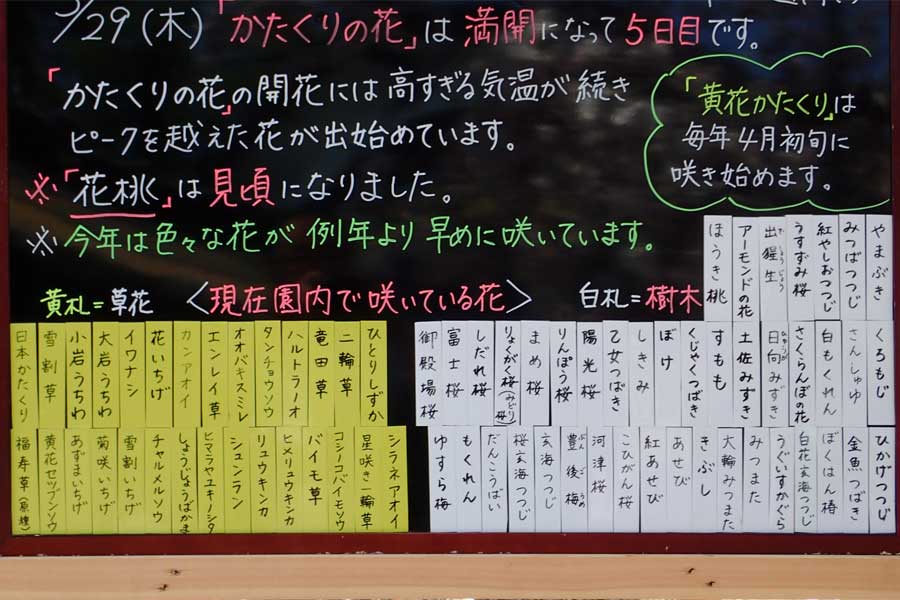 3/29(木)「かたくりの花」は満開になって5日目です。
「かたくりの花」の開花には高すぎる気温が続き
ピークを越えた花が出始めています。
※「花桃」は見頃になりました。
※今年は色々な花が例年より早めに咲いています。
「黄花かたくり」は
毎年4月初旬に
咲き始めます。
黄札=草花
〈現在園内で咲いている花〉
白札=樹木
やまぶき
みつばつつじ
紅やしおつつじ
うすずみ桜
出猩々
アーモンドの花
ほうき桃
くろもじ
さんしゅゆ
白もくれん
さくらんぼの花
日向みずき
土佐みずき
すもも
くじゃくつばき
ぼけ
しきみ
乙女つばき
陽光桜
りんぽう桜
まめ桜
りょくがく桜(みどり桜)
しだれ桜
富士桜
御殿場桜
ひかげつつじ
金魚つばき
ぼくはん椿
白花玄海つつじ
うぐいすかぐら
みつまた
大輪みつまた
きぶし
あせび
紅あせび
こひがん桜
河津桜
豊後梅
玄海つつじ
桜玄海つつじ
だんこうばい
もくれん
ゆすら梅
ひとりしずか
二輪草
竜田草
ハルトラノオ
タンチョウソウ
オオバキスミレ
エンレイ草
カンアオイ
花いちげ
イワナシ
大岩うちわ
小岩うちわ
雪割草
日本かたくり
シラネアオイ
星咲き一輪草
コシノコバイモソウ
バイモ草
ヒメリュウキンカ
リュウキンカ
シュンラン
ヒマラヤユキノシタ
しょうじょうばかま
チャルメルソウ
雪割いちげ
菊咲いちげ
あずまいちげ
黄花セツブンソウ
福寿草